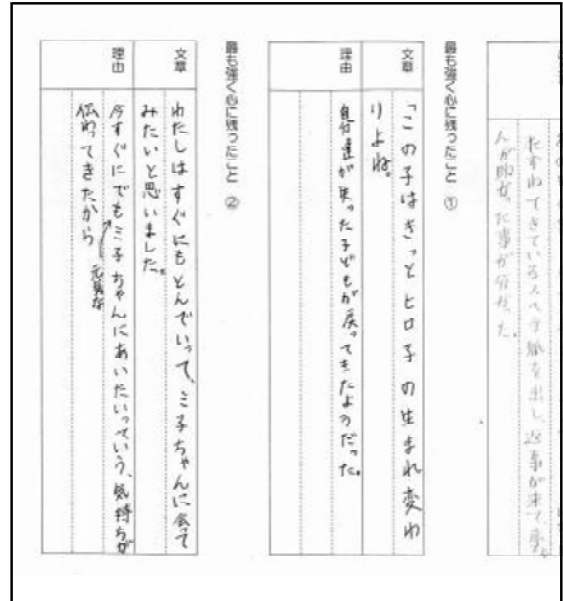 たずねてきている人へ手紙を出し、返事が来て、
んが
た事が分かった。
最も強く心に残ったこと ①
文章
「この子はきっとヒロ子の生まれ変わ
りよね。
理由
自分達が失った子どもが戻ってきたようだった。
最も強く心に残ったこと ②
文章
わたしはすぐにもとんでいって、ミ子ちゃんに会って
みたいと思いました。
理由
今すぐにでもミ子ちゃんにあいたいっていう、気持ちが
元気な
伝わってきたから